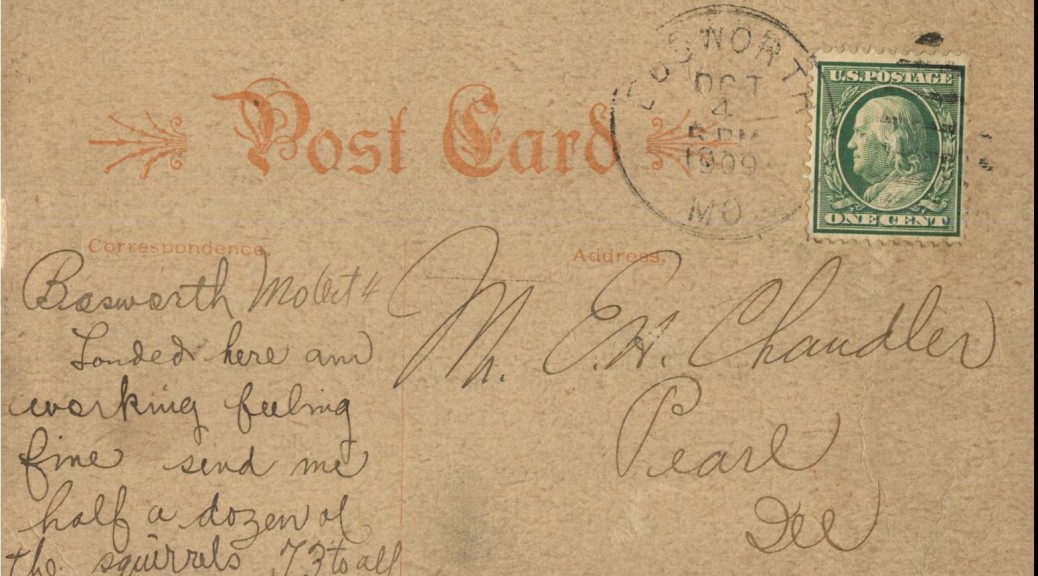 Post Card
BOSWORTH
OCT
4
5 PM
1909
MO.
U.S. POSTAGE
ONE CENT
Correspondence.
Address.
Bosworth Mo Oct 4
Landed here am
working feeling
fine send me
half a dozen of
the squirrels 73 to all
Mr. E.H. Chandler
Pearl
Ill